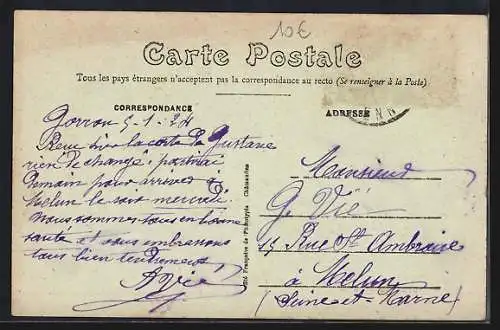 10€
Carte Postale
Tous les pays étrangers n'acceptent pas la correspondance au recto (Se renseigner à la Poste)
CORRESPONDANCE
ADRESSE
Gorron 5-1-24
la carte de Gustave
rien de change, partirai
demain pour arriver à
Melun le soir mercredi.
Nous sommes tous en bonne
santé et vous embrassons
tous bien tendrement
A Vié
Sté Française de Phototypie Châteaudun
Monsieur
G. Vié
15 Rue St Ambroise
à Melun
(Seine-et-Marne)